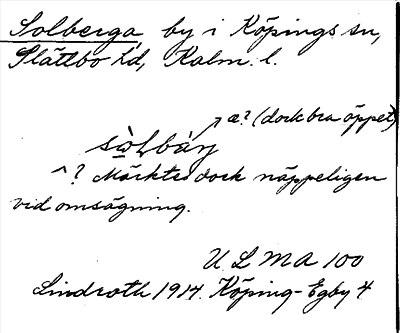 Solberga, by i Köpings sn,
Slättbo hd, Kalm. l.
æ? (dock bra öppet)
sòlbàrj
^? Märktes dock näppeligen
vid omsägning.
ULMA 100
Lindroth 1914. Köping-Egby 4